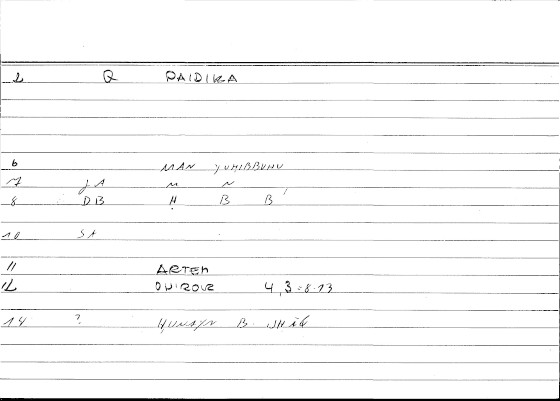 2 Q PAIDIKA
6 MAN YUHIBBUHU
7 JA M N
8 DB Ḥ B B
10 SA
11 ARTEM
12 ONIROCR 4,3 = 8.13
14 ? ḤUNAYN B.